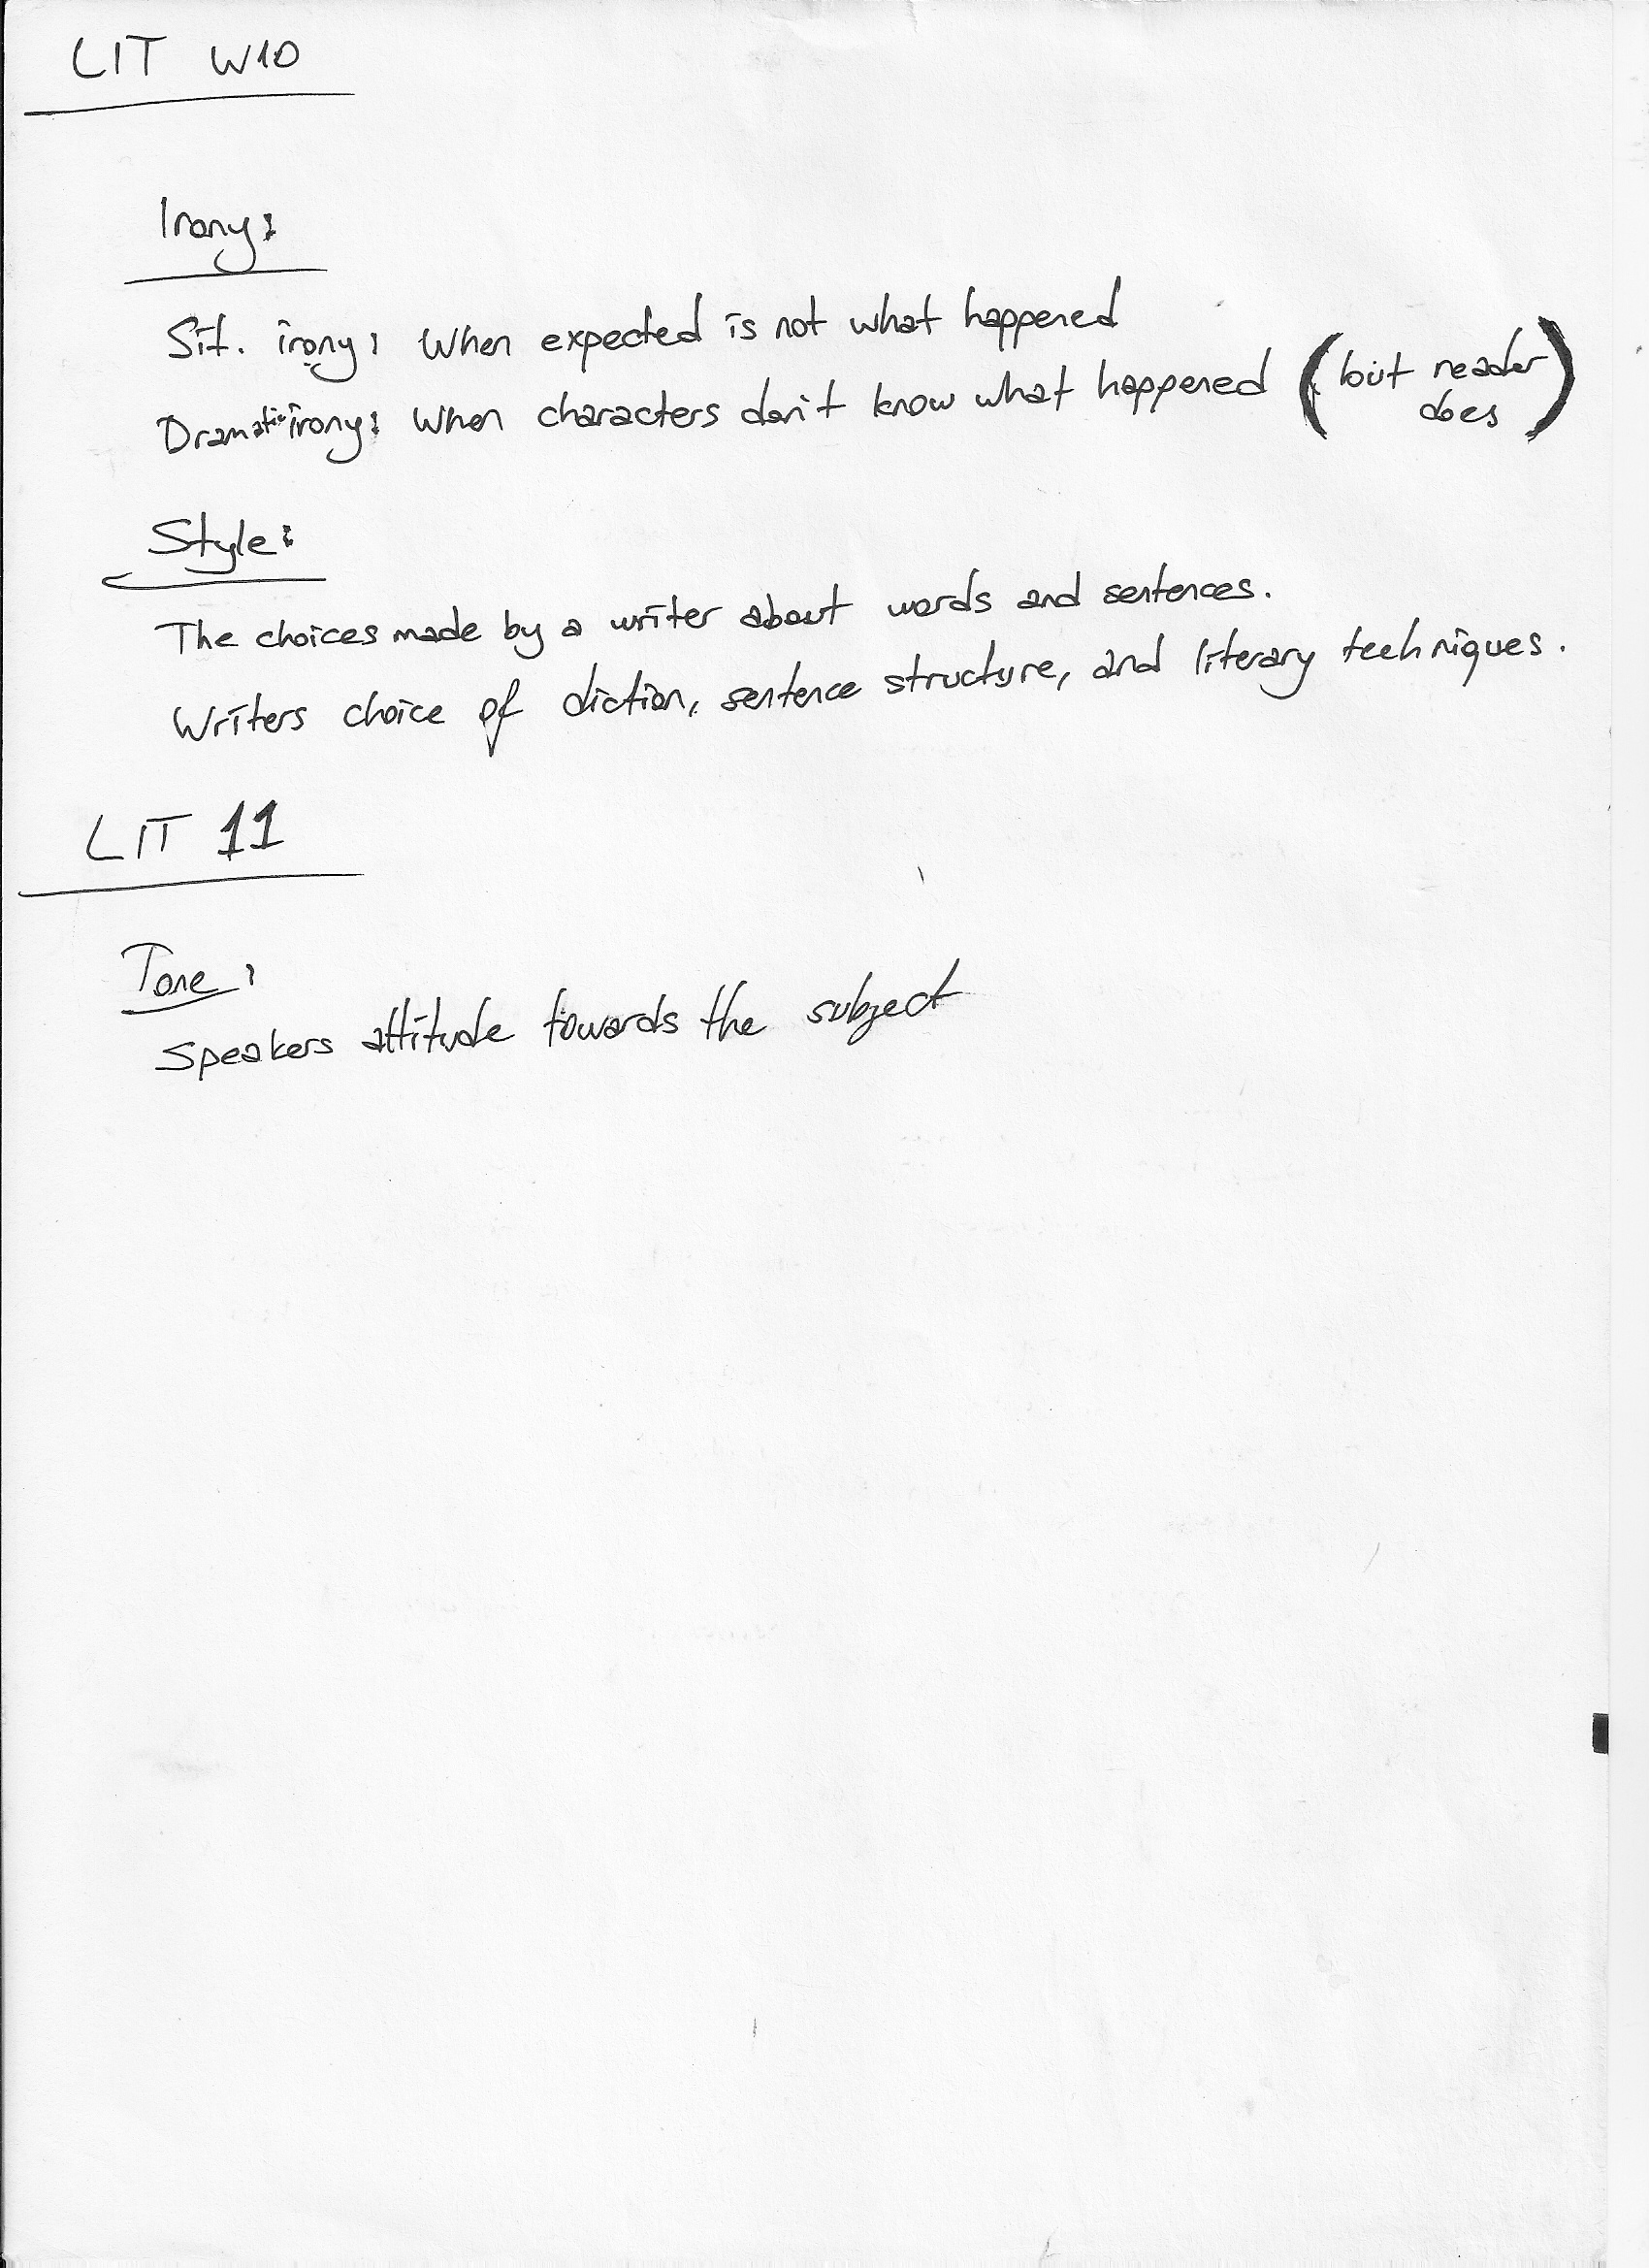 LIT W10
Irony:
Sit. irony: When expected is not what happened
Dramatic irony: When characters don't know what happened (but reader does)
Style:
The choices made by a writer about words and sentences.
Writers choice of diction, sentence structure, and literary techniques.
LIT 11
Tone:
Speakers attitude towards the subject